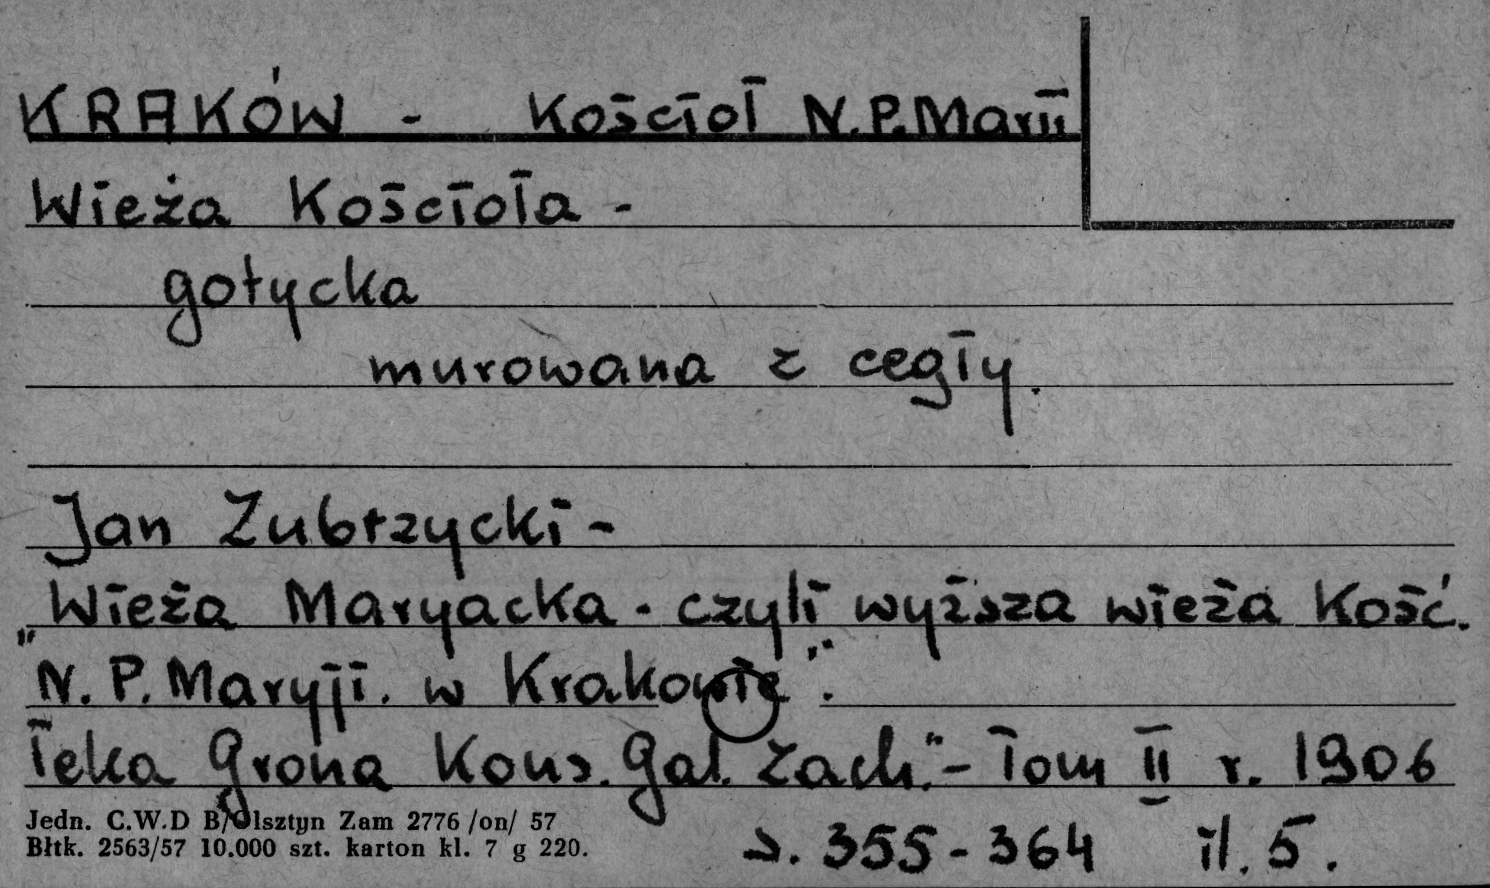 KRAKÓW - Kościoł N.P.Marii
Wieża Kościoła -
gotycka
murowana z cegły.
Jan Zubrzycki -
"Wieża Maryacka - czyli wyższa wieża Kość.
N.P.Maryji. w Krakowie".
"Teka Grona Kons. Gal. Zach." - Tom II r. 1906
s. 355-364 il. 5.
Jedn. C.W.D B/Olsztyn Zam 2776 /on/ 57
Błtk. 2563/57 10.000 szt. karton kl. 7 g 220.